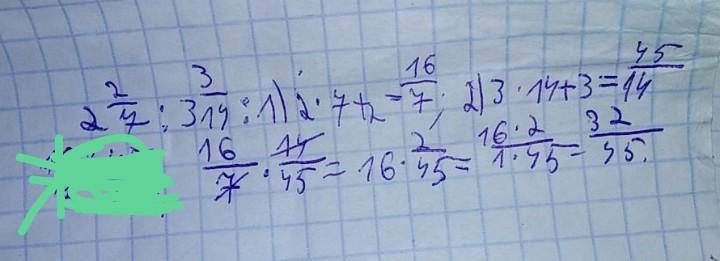 2 2/7 : 3 3/14 : 1) 2 · 7 + 2 = 16/7; 2) 3 · 14 + 3 = 45/14
16/7 · 14/45 = 16 · 2/45 = 16 · 2/1 · 45 = 32/45.